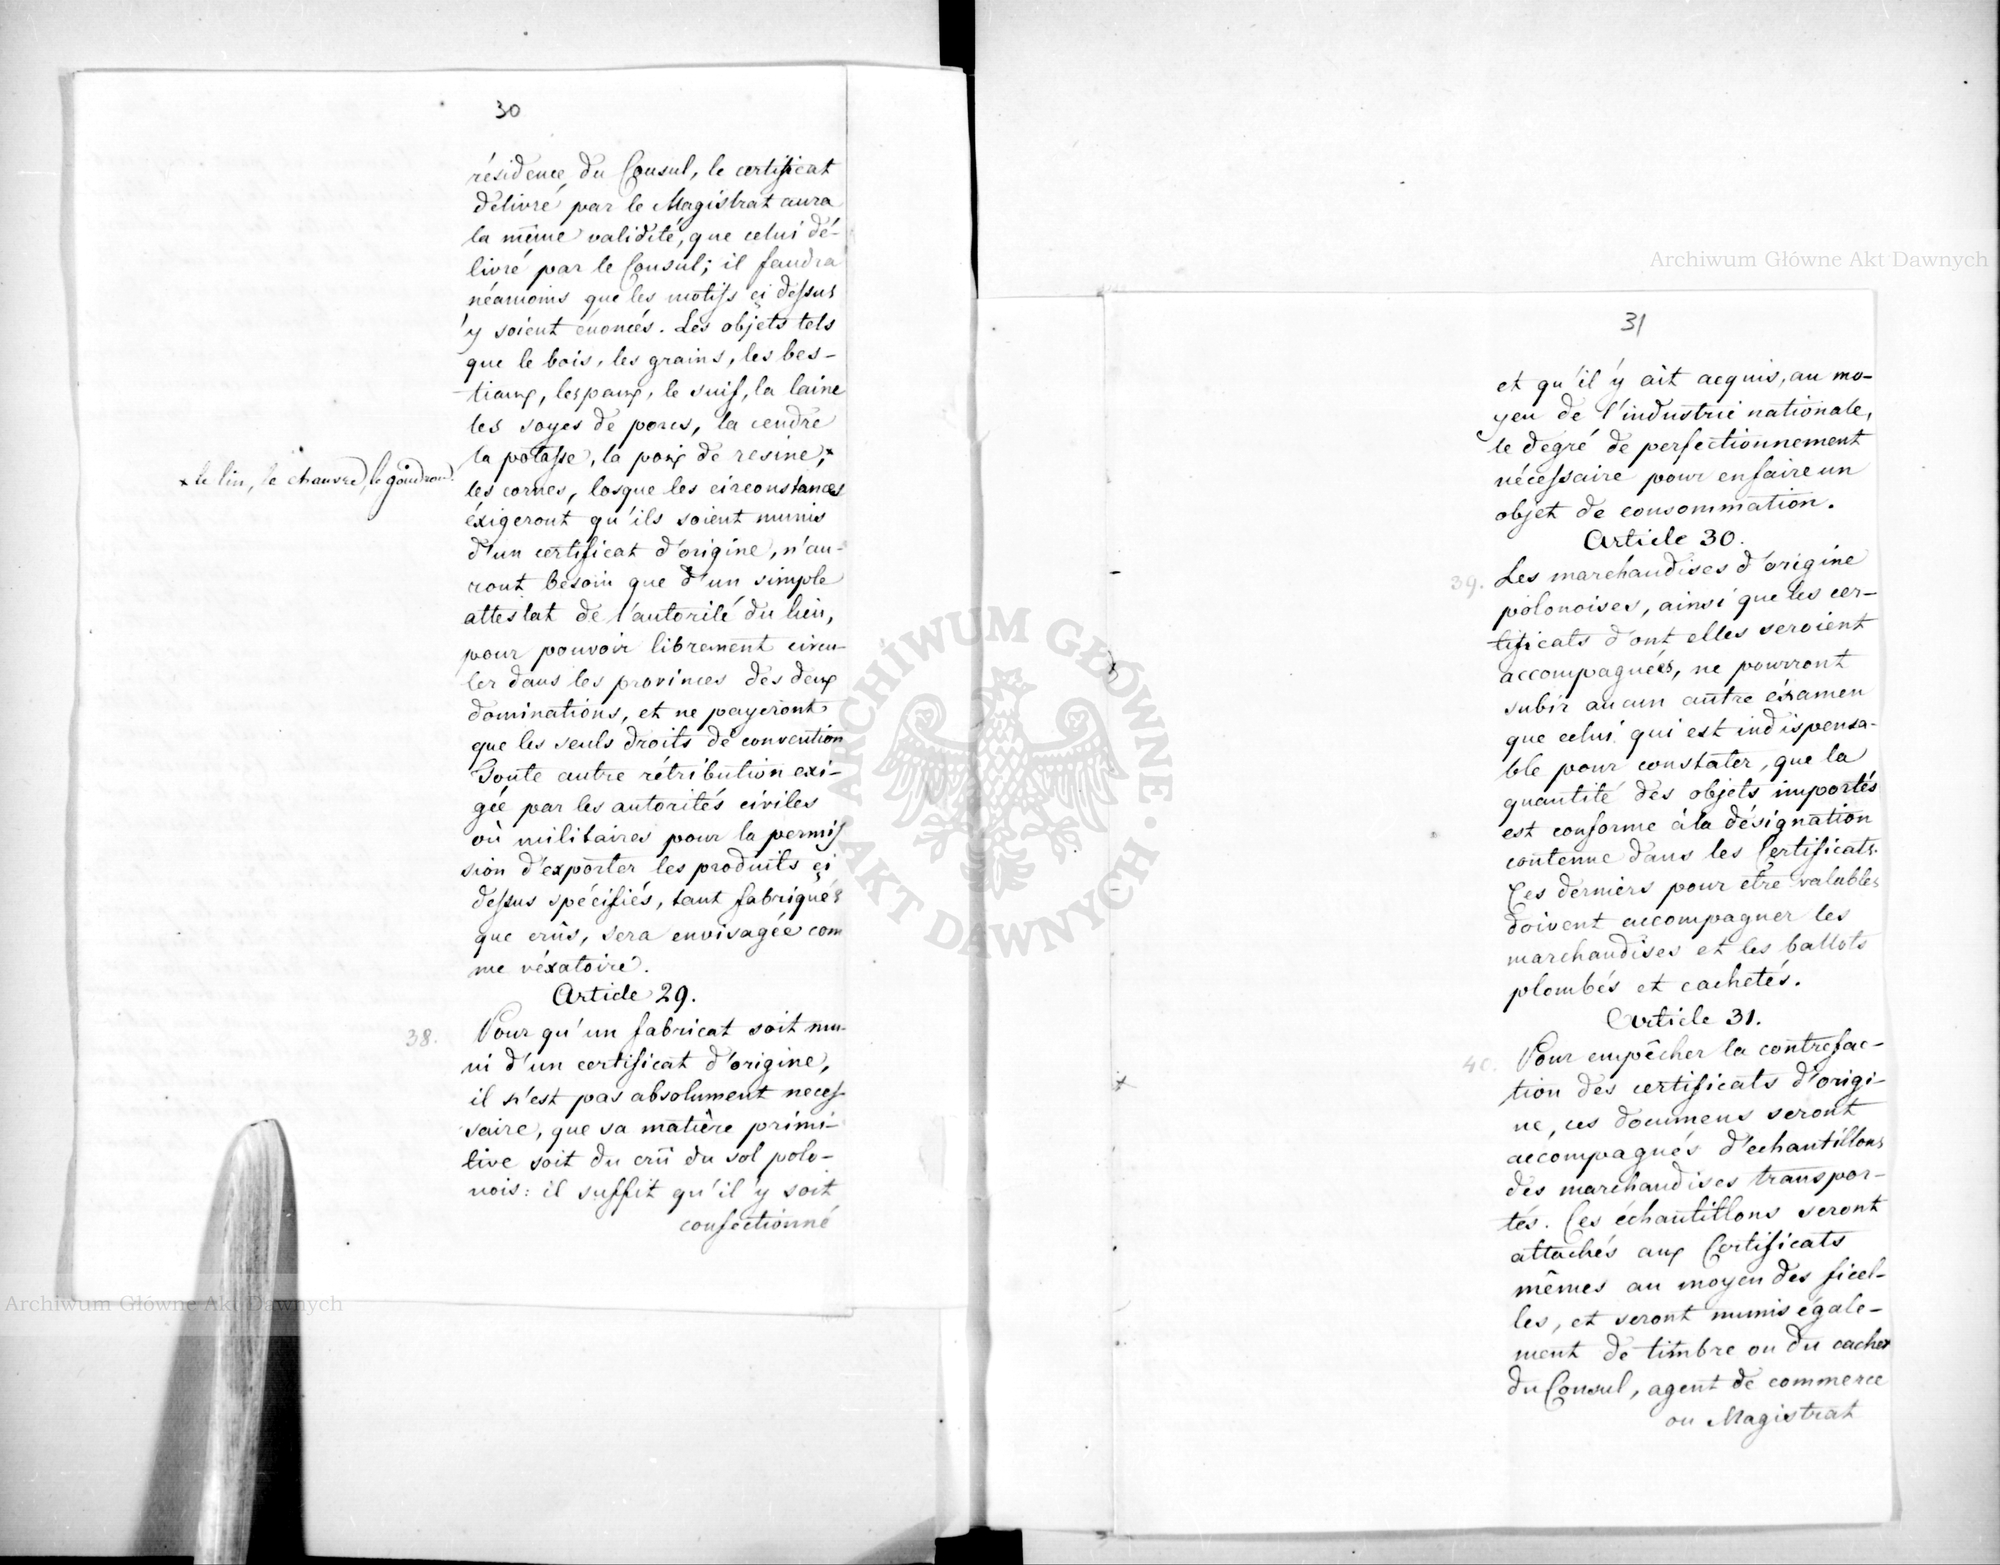 30
résidence du Consul, le certificat
délivré par le Magistrat aura
la même validité, que celui dé-
livré par le Consul; il faudra
néamoins que les motifs çi dessus
y soient énoncés. Les objets tels
que le bois, les grains, les bes-
tiaux, les peaux, le suif, la laine
les soyes de porcs, la cendre
la potasse, la poix de resine, *
* le lin, le chanvre, le goudron.
les cornes, losque les circonstances
éxigeront qu'ils soient munis
d'un certificat d'origine, n'au-
ront besoin que d'un simple
attestat de l'autorité du lieu,
pour pouvoir librement circu-
ler dans les provinces des deux
dominations, et ne payeront
que les seuls droits de convention
Toute autre rétribution exi-
gée par les autorités civiles
où militaires pour la permis
sion d'exporter les produits çi
dessus spécifiés, tant fabriqués
que crûs, sera envisagée com
me véxatoire.
Article 29.
38. Pour qu'un fabricat soit mu-
ni d'un certificat d'origine,
il n'est pas absolument neces-
saire, que sa matière primi-
tive soit du crû du sol polo-
nois: il suffit qu'il y soit
confectionné
31
et qu'il y ait acquis, au mo-
yen de l'industrie nationale,
le degré de perfectionnement
nécessaire pour en faire un
objet de consommation.
Article 30.
39. Les marchandises d'origine
polonoises, ainsi que les cer-
tificats d'ont elles seroient
accompagnées, ne pourront
subir aucun autre éxamen
que celui qui est indispensa-
ble pour constater, que la
quantité des objets importés
est conforme à la désignation
contenue dans les Certificats.
Ces derniers pour etre valables
doivent accompagner les
marchandises et les ballots
plombés et cachetés.
Article 31.
40. Pour empêcher la contrefac-
tion des certificats d'origi-
ne, ces documens seront
accompagnés d'echantillons
des marchandises transpor-
tés. Ces échantillons seront
attachés aux Certificats
mêmes au moyen des ficel-
les, et seront munis égale-
ment de timbre ou du cachet
du Consul, agent de commerce
ou Magistrat
Archiwum Główne Akt Dawnych
Archiwum Główne Akt Dawnych
ARCHIWUM GŁÓWNE · AKT DAWNYCH ·